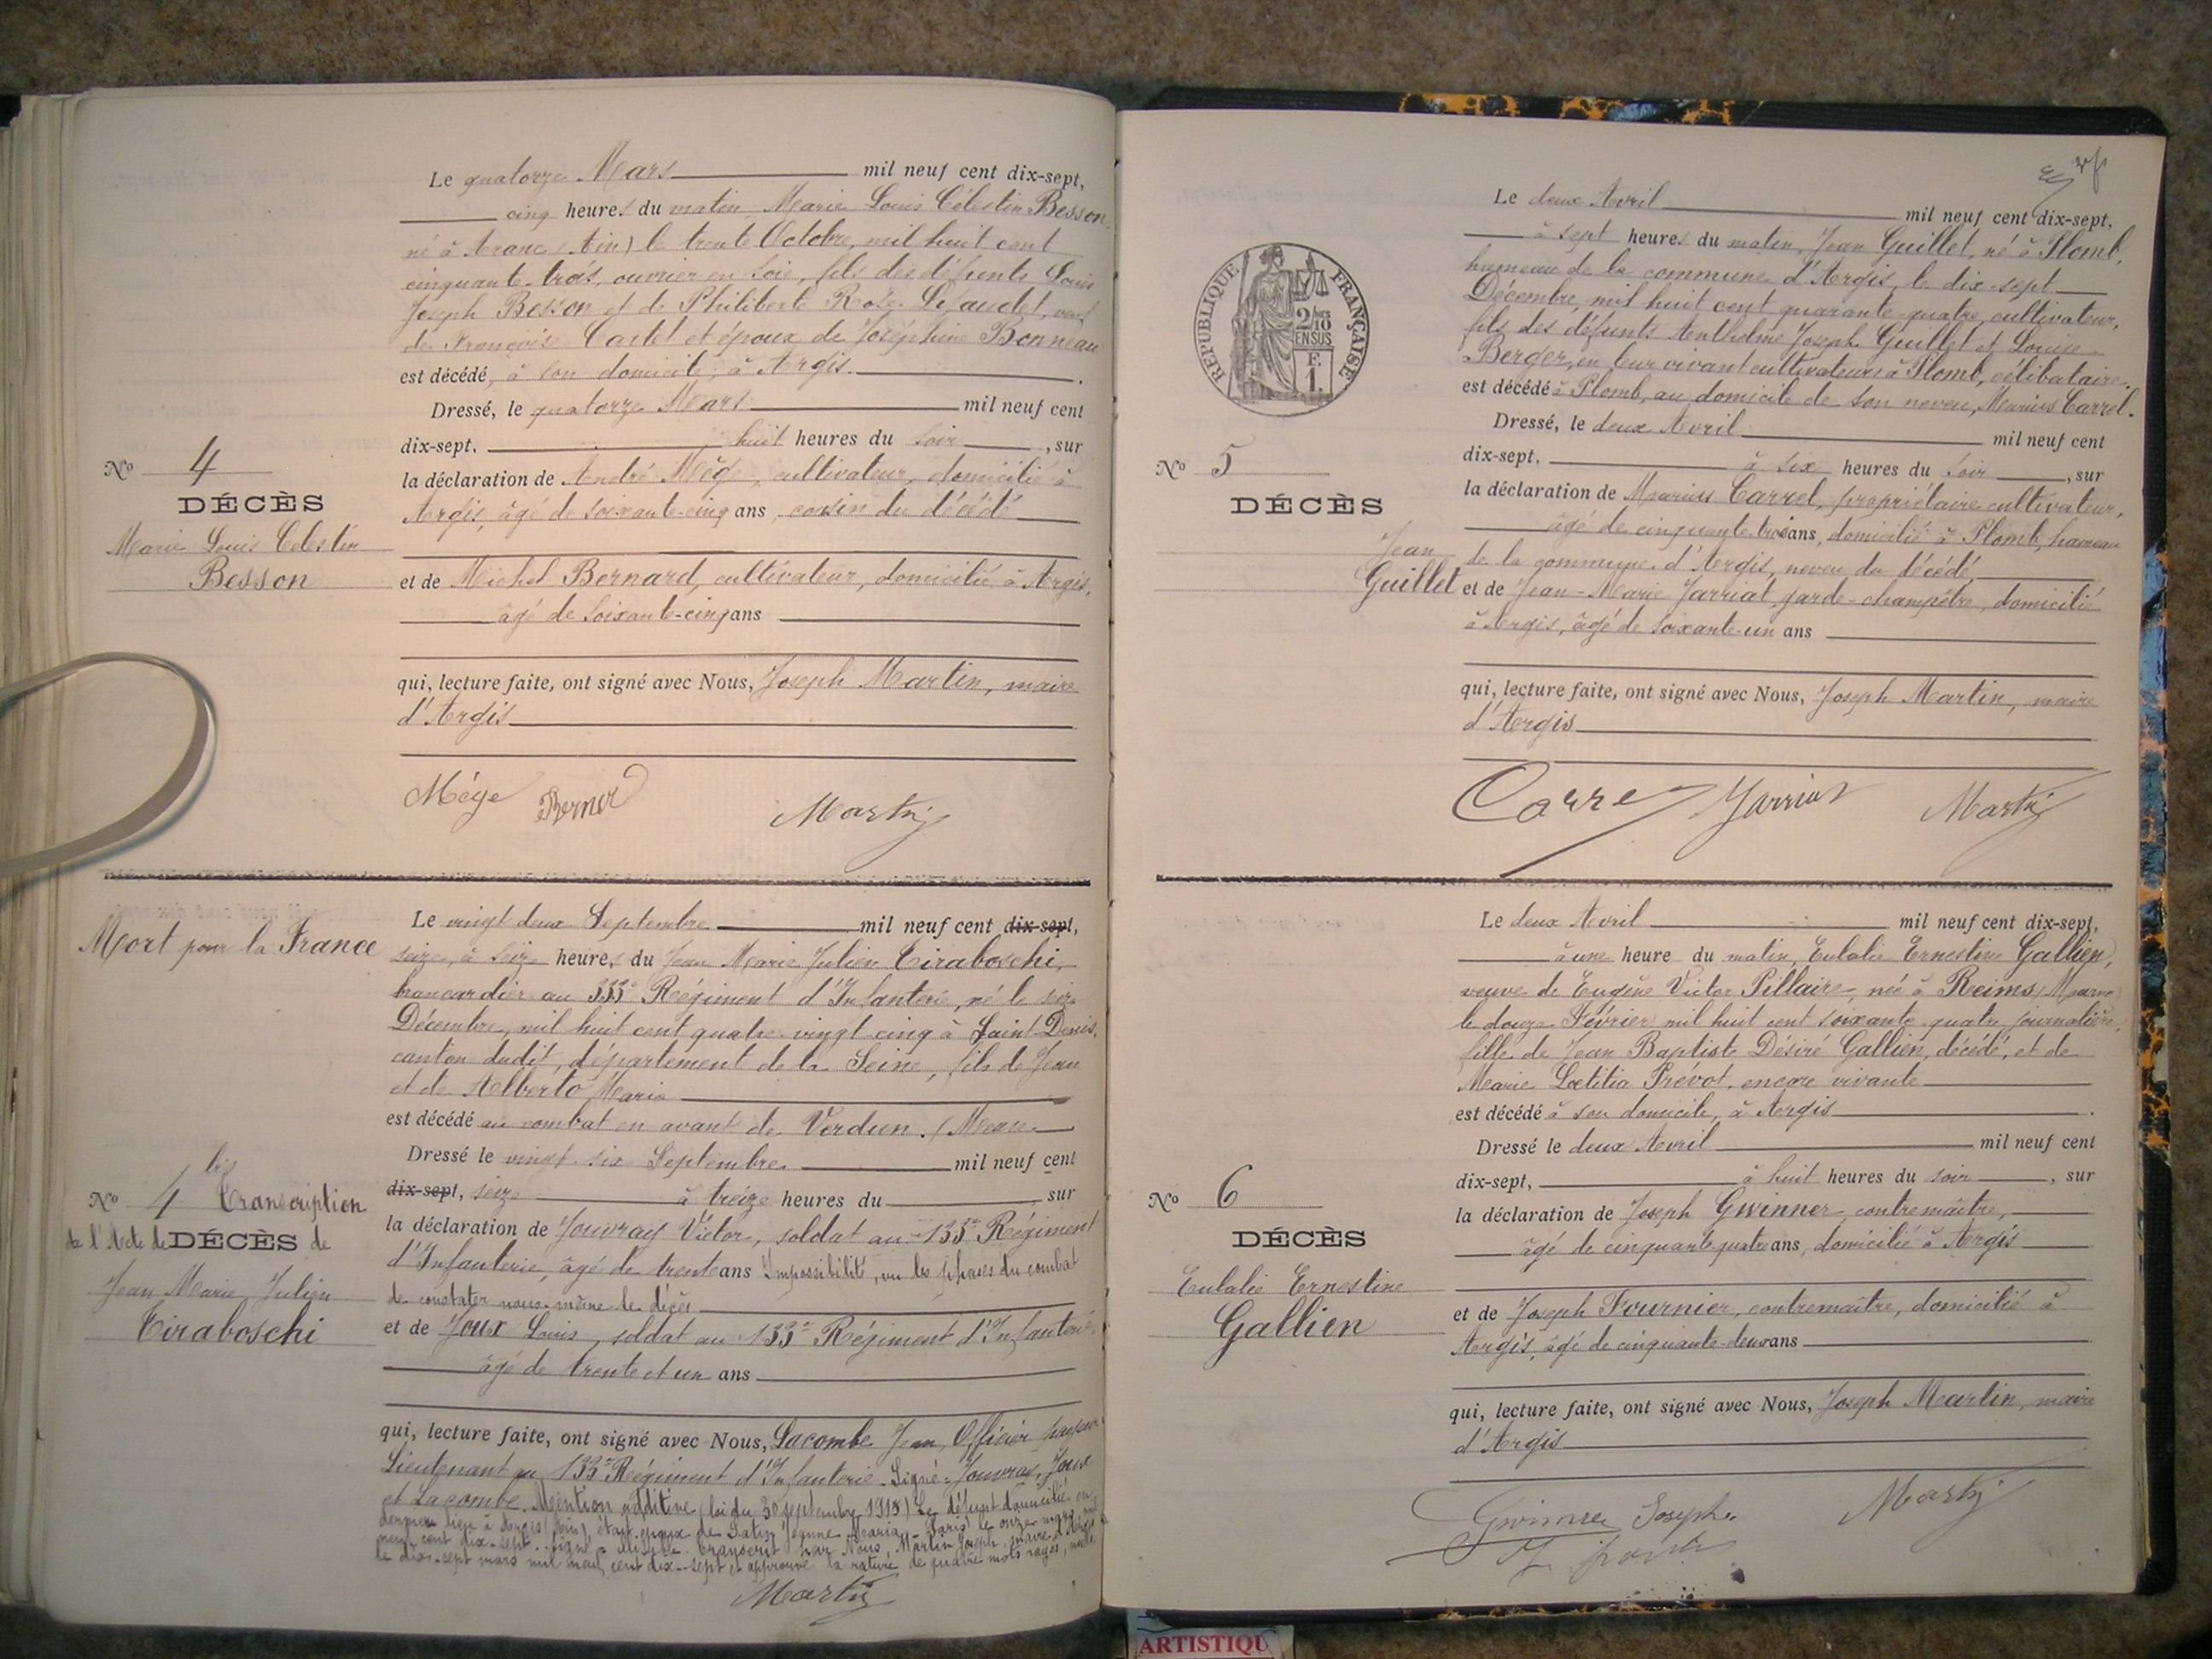 Le quatorze Mars mil neuf cent dix-sept,
cinq heures du matin, Marie Louis Célestin Besson,
né à Aranc (Ain) le trente Octobre, mil huit cent
cinquante-trois, ouvrier en soie, fils des défunts Louis
Joseph Besson et de Philiberte Roze Lefaudet, veuf
de Françoise Cartet et époux de Joséphine Bonneau
est décédé, à son domicile, à Argis.
Dressé, le quatorze Mars mil neuf cent
dix-sept. huit heures du soir, sur
la déclaration de André Mège, cultivateur, domicilié à
Argis, âgé de soixante-cinq ans, cousin du décédé
et de Michel Bernard, cultivateur, domicilié à Argis,
âgé de soixante-cinq ans
qui, lecture faite, ont signé avec Nous, Joseph Martin, maire
d'Argis
Mége Martin
No 4
DÉCÈS
Marie Louis Celestin
Besson
Mort pour la France
Le vingt deux Septembre mil neuf cent dix-sept,
seize, à seize heures du Jean Marie Julien Tiraboschi,
brancardier au 333e Régiment d'Infanterie, né le seize
Décembre, mil huit cent quatre-vingt cinq à Saint-Denis,
canton dudit, département de la Seine, fils de Jean
et de Alberto Maria
est décédé au combat en avant de Verdun. (Meuse
Dressé le vingt-six Septembre mil neuf cent
dix-sept, seize à treize heures du sur
la déclaration de Jouvray Victor, soldat au 133e Régiment
d'Infanterie, âgé de trente ans Impossibilité, vu les phases du combat
de constater nous-même le décès
et de Joux Louis, soldat au 133e Régiment d'Infanterie
âgé de trente et un ans
qui, lecture faite, ont signé avec Nous, Lacombe Jean, Officier payeur
Lieutenant au 133e Régiment d'Infanterie. Signé: Jouvray, Joux
et Lacombe. Mention additive (loi du 30 septembre 1915) Le défunt domicilié en
dernier lieu à Argis (Ain), étant époux de Jeanne Maria. Paris le onze mars mil
neuf cent dix-sept. signé Transcrit par Nous, Martin Joseph, maire d'Argis
le dix-sept mars mil neuf cent dix-sept et approuvé la rature de quatre mots rayés, nuls.
Martin
No 4 bis Transcription
de l'Acte de DÉCÈS de
Jean Marie Julien
Tiraboschi
RÉPUBLIQUE FRANÇAISE
2/10
EN SUS
F.
1.
Le deux Avril mil neuf cent dix-sept,
à sept heures du matin, Jean Guillet, né à Plomb,
hameau de la commune d'Argis, le dix-sept
Décembre, mil huit cent quarante-quatre, cultivateur,
fils des défunts Anthelme Joseph Guillet et Louise
Berger, en leur vivant cultivateurs à Plomb, célibataire.
est décédé à Plomb, au domicile de son neveu, Marius Carrel.
Dressé, le deux Avril mil neuf cent
dix-sept. à six heures du soir, sur
la déclaration de Marius Carrel, propriétaire cultivateur,
âgé de cinquante trois ans, domicilié à Plomb, hameau
de la commune d'Argis, neveu du décédé,
et de Jean-Marie Jarriat, garde-champêtre, domicilié
à Argis, âgé de soixante-un ans
qui, lecture faite, ont signé avec Nous, Joseph Martin, maire
d'Argis
Carrel Jarriat Martin
No 5
DÉCÈS
Jean
Guillet
Le deux Avril mil neuf cent dix-sept,
à une heure du matin, Eulalie Ernestine Gallien,
veuve de Eugène Victor Pillaire, née à Reims (Marne)
le douze Février mil huit cent soixante-quatre, journalière,
fille de Jean Baptiste Désiré Gallien, décédé, et de
Marie Lœtitia Prévot, encore vivante
est décédé à son domicile, à Argis.
Dressé le deux Avril mil neuf cent
dix-sept, à huit heures du soir, sur
la déclaration de Joseph Gwinner, contremaître,
âgé de cinquante quatre ans, domicilié à Argis
et de Joseph Fournier, contremaître, domicilié à
Argis, âgé de cinquante-deux ans
qui, lecture faite, ont signé avec Nous, Joseph Martin, maire
d'Argis
Gwinner Joseph Martin
No 6
DÉCÈS
Eulalie Ernestine
Gallien
ARTISTIQU